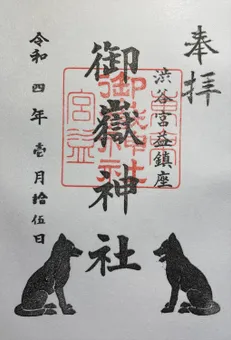 奉拝
渋谷宮益鎮座
御嶽神社
令和四年壱月拾伍日
御嶽神社
宮益